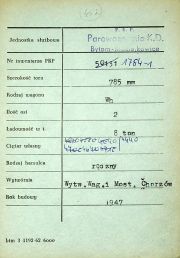 Jednostka służbowa
P. K. P.
Parowozownia K.D.
Nr inwentarza PKP
1764-1
Szerokość toru
785 mm
Rodzaj wagonu
Wh
Ilość osi
2
Ładowność w t.
8 ton
Ciężar własny
4440
Rodzaj hamulca
ręczny
Wytwórnia
Wytw.Wag.i Most. Chorzów
Rok budowy
1947